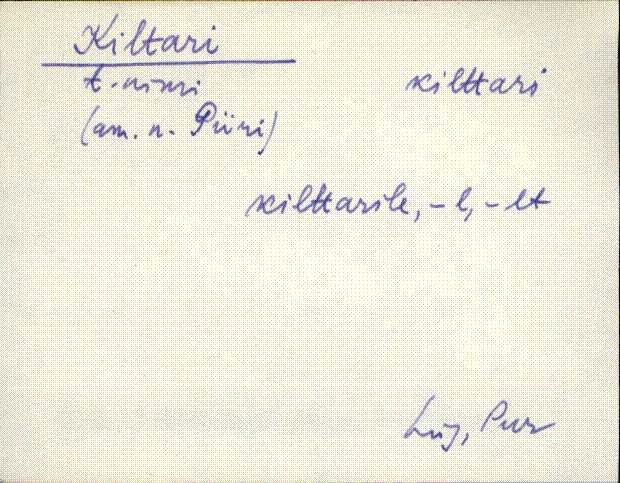 Kiltari
t. nimi kilttari
(am. n. Piiri)
kilttarile, -l, -lt
Lüg, Pur